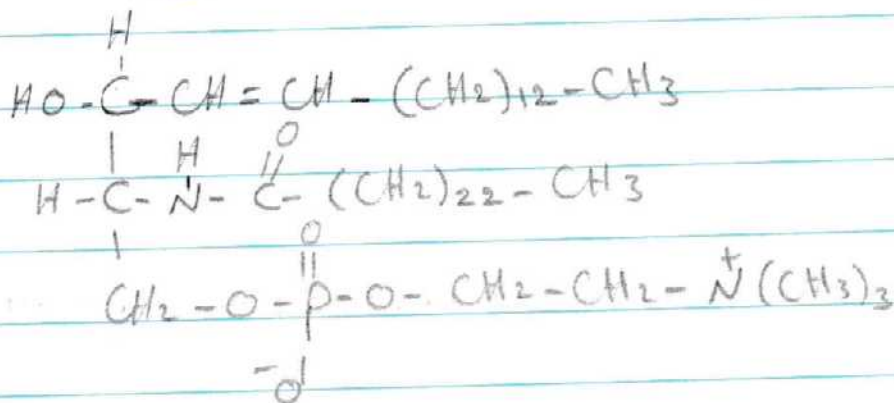 H
HO-C-CH=CH-(CH2)12-CH3
H O
H-C-N-C-(CH2)22-CH3
O
CH2-O-P-O-CH2-CH2-N+(CH3)3
-O